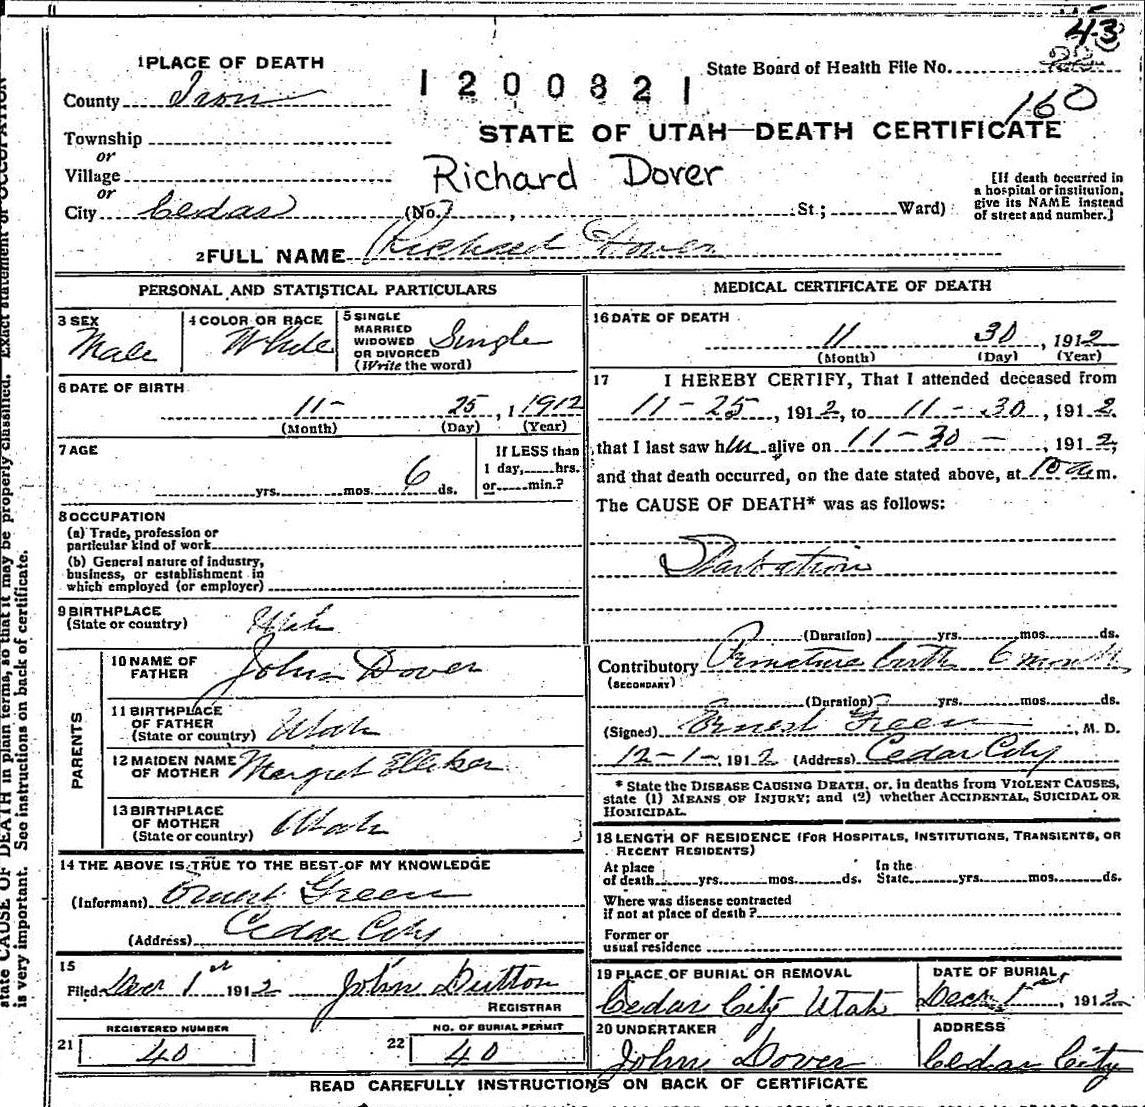 43
1 PLACE OF DEATH
State Board of Health File No.
County Iron
1200821
160
Township
STATE OF UTAH—DEATH CERTIFICATE
or
Village
Richard Dover
or
City Cedar (No. , St.; Ward)
[If death occurred in
a hospital or institution,
give its NAME instead
of street and number.]
2 FULL NAME Richard Dover
PERSONAL AND STATISTICAL PARTICULARS
3 SEX
Male
4 COLOR OR RACE
White
5 SINGLE
MARRIED
WIDOWED
OR DIVORCED
(Write the word)
Single
6 DATE OF BIRTH
11- 25, 1 1912
(Month) (Day) (Year)
7 AGE
yrs. mos. 6 ds.
If LESS than
1 day, hrs.
or min.?
8 OCCUPATION
(a) Trade, profession or
particular kind of work
(b) General nature of industry,
business, or establishment in
which employed (or employer)
9 BIRTHPLACE
(State or country) Utah
PARENTS
10 NAME OF
FATHER John Dover
11 BIRTHPLACE
OF FATHER
(State or country) Utah
12 MAIDEN NAME
OF MOTHER Margret Elliker
13 BIRTHPLACE
OF MOTHER
(State or country) Utah
14 THE ABOVE IS TRUE TO THE BEST OF MY KNOWLEDGE
(Informant) Ernest Green
(Address) Cedar City
15
Filed Dec 1st 1912 John Dutton
REGISTRAR
REGISTERED NUMBER
21 40
NO. OF BURIAL PERMIT
22 40
MEDICAL CERTIFICATE OF DEATH
16 DATE OF DEATH
11 30, 1912
(Month) (Day) (Year)
17 I HEREBY CERTIFY, That I attended deceased from
11-25, 1912, to 11-30, 1912.
that I last saw him alive on 11-30-, 1912,
and that death occurred, on the date stated above, at 10 a m.
The CAUSE OF DEATH* was as follows:
(Duration) yrs. mos. ds.
Contributory Premature birth 6 months
(SECONDARY)
(Duration) yrs. mos. ds.
(Signed) Ernest Green, M. D.
12-1-, 1912 (Address) Cedar City
* State the DISEASE CAUSING DEATH, or, in deaths from VIOLENT CAUSES,
state (1) MEANS OF INJURY; and (2) whether ACCIDENTAL, SUICIDAL OR
HOMICIDAL.
18 LENGTH OF RESIDENCE (FOR HOSPITALS, INSTITUTIONS, TRANSIENTS, OR
RECENT RESIDENTS)
At place
of death yrs. mos. ds.
In the
State yrs. mos. ds.
Where was disease contracted
if not at place of death?
Former or
usual residence
19 PLACE OF BURIAL OR REMOVAL
Cedar City Utah
DATE OF BURIAL
Dec 1st, 1912
20 UNDERTAKER
John Dover
ADDRESS
Cedar City
READ CAREFULLY INSTRUCTIONS ON BACK OF CERTIFICATE
state CAUSE OF DEATH in plain terms, so that it may be properly classified. Exact statement of OCCUPATION
is very important. See instructions on back of certificate.